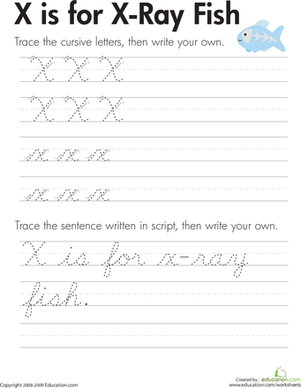 X is for X-Ray Fish
Trace the cursive letters, then write your own.
X X X
X X X
x x x
x x x
Trace the sentence written in script, then write your own.
X is for x-ray
fish.
Created by:
education.com
Copyright 2008-2009 Education.com
www.education.com/worksheets